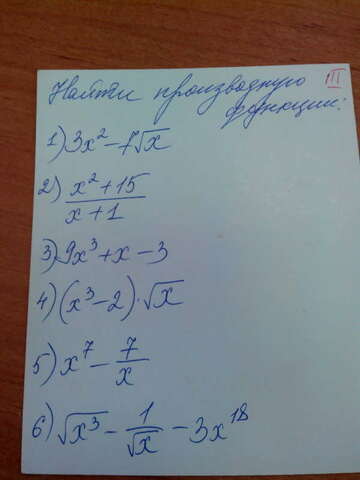 Найти производную III
функции:
1) 3x² - 7√x
2) (x² + 15)/(x + 1)
3) 9x³ + x - 3
4) (x³ - 2) · √x
5) x⁷ - 7/x
6) √x³ - 1/√x - 3x¹⁸